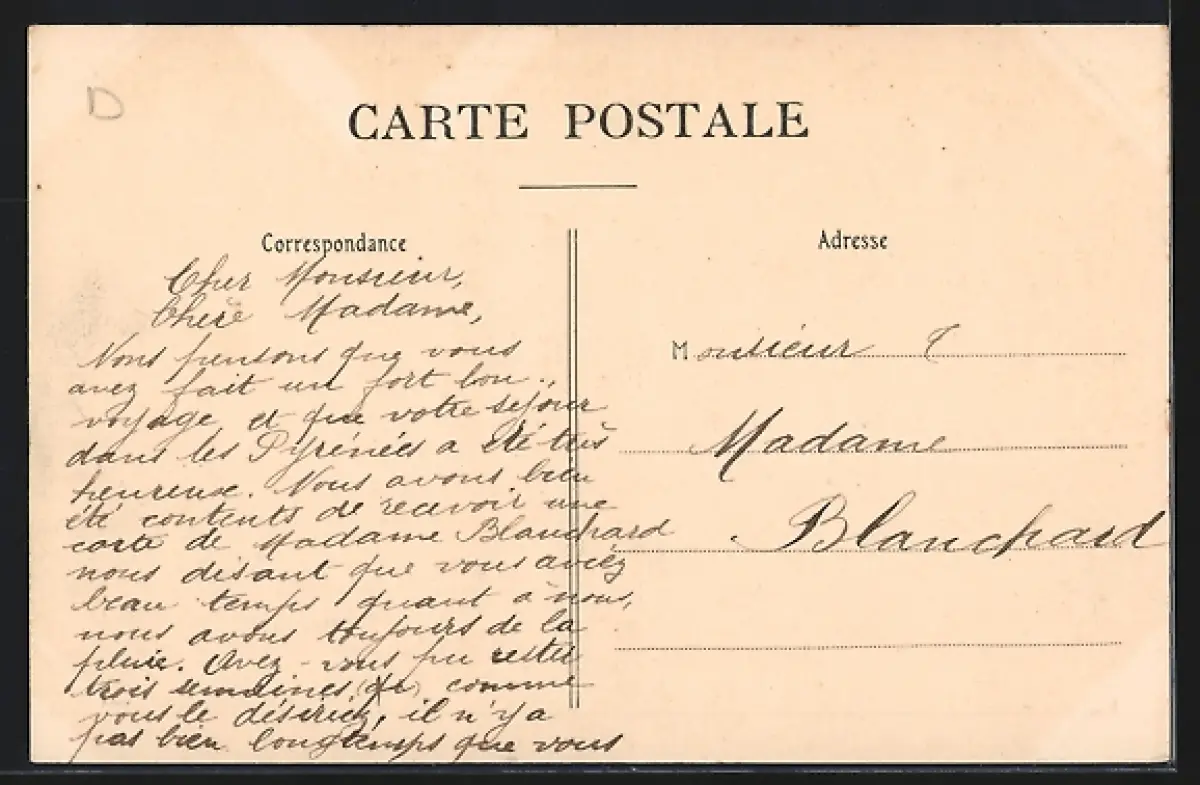 D
CARTE POSTALE
Correspondance
Cher Monsieur,
Chère Madame,
Nous pensons que vous
avez fait un fort bon
voyage et que votre séjour
dans les Pyrénées a été très
heureux. Nous avons bien
été contents de recevoir une
carte de Madame Blanchard
nous disant que vous aviez
beau temps quant à nous,
nous avons toujours de la
pluie. Avez-vous pu rester
trois semaines, comme
vous le désiriez, il n'y a
pas bien longtemps que vous
Adresse
Monsieur
Madame
Blanchard